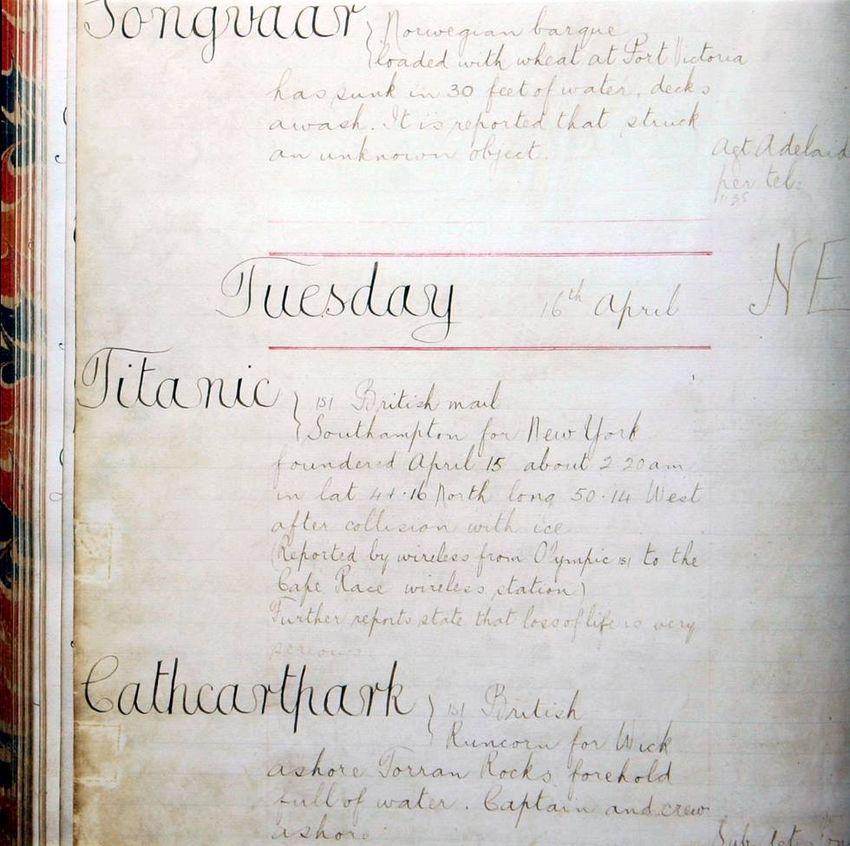 Songvaar } Norwegian barque
loaded with wheat at Port Victoria
has sunk in 30 feet of water, decks
awash. It is reported that struck
an unknown object.
Agt Adelaid
per tel:
Tuesday 16th April NE
Titanic } (s) British mail
Southampton for New York
foundered April 15 about 2 20 am
in lat 41.16 North long 50.14 West
after collision with ice
(Reported by wireless from Olympic (s) to the
Cape Race wireless station)
Further reports state that loss of life is very
serious.
Cathcartpark } (s) British
Runcorn for Wick
ashore Torran Rocks forehold
full of water. Captain and crew
ashore